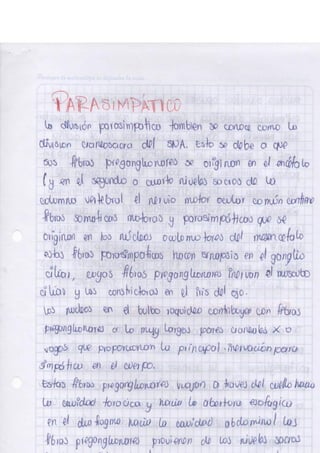 PARASIMPÁTICO
La división parasimpática tambien se conoce como la
división craneosacra del SNA. Esto se debe a que
sus fibras preganglionares se originan en el encéfalo
(y en el segundo o cuarto niveles sacros de la
columna vertebral el nervio motor ocular común contiene
fibras somaticas motoras y parasimpáticas que se
originan en los núcleos oculomotores del mesencefalo
estas fibras parasimpáticas hacen sinapsis en el ganglio
ciliar, cuyas fibras preganglionares inervan el musculo
ciliar y las constrictoras en el iris del ojo.
Los nucleos en el bulbo raquideo contribuyen con fibras
preganglionares a lo muy largos pares craneales X o
vagos que proporcionan la principal inervacion para
simpática en el cuerpo.
Estas fibras preganglionares viajan a traves del cuello hacia
la cavidad toraxica y hacia la abertura esofagica
en el diafragma hacia la cavidad abdominal las
fibras preganglionares provienen de los niveles sacros